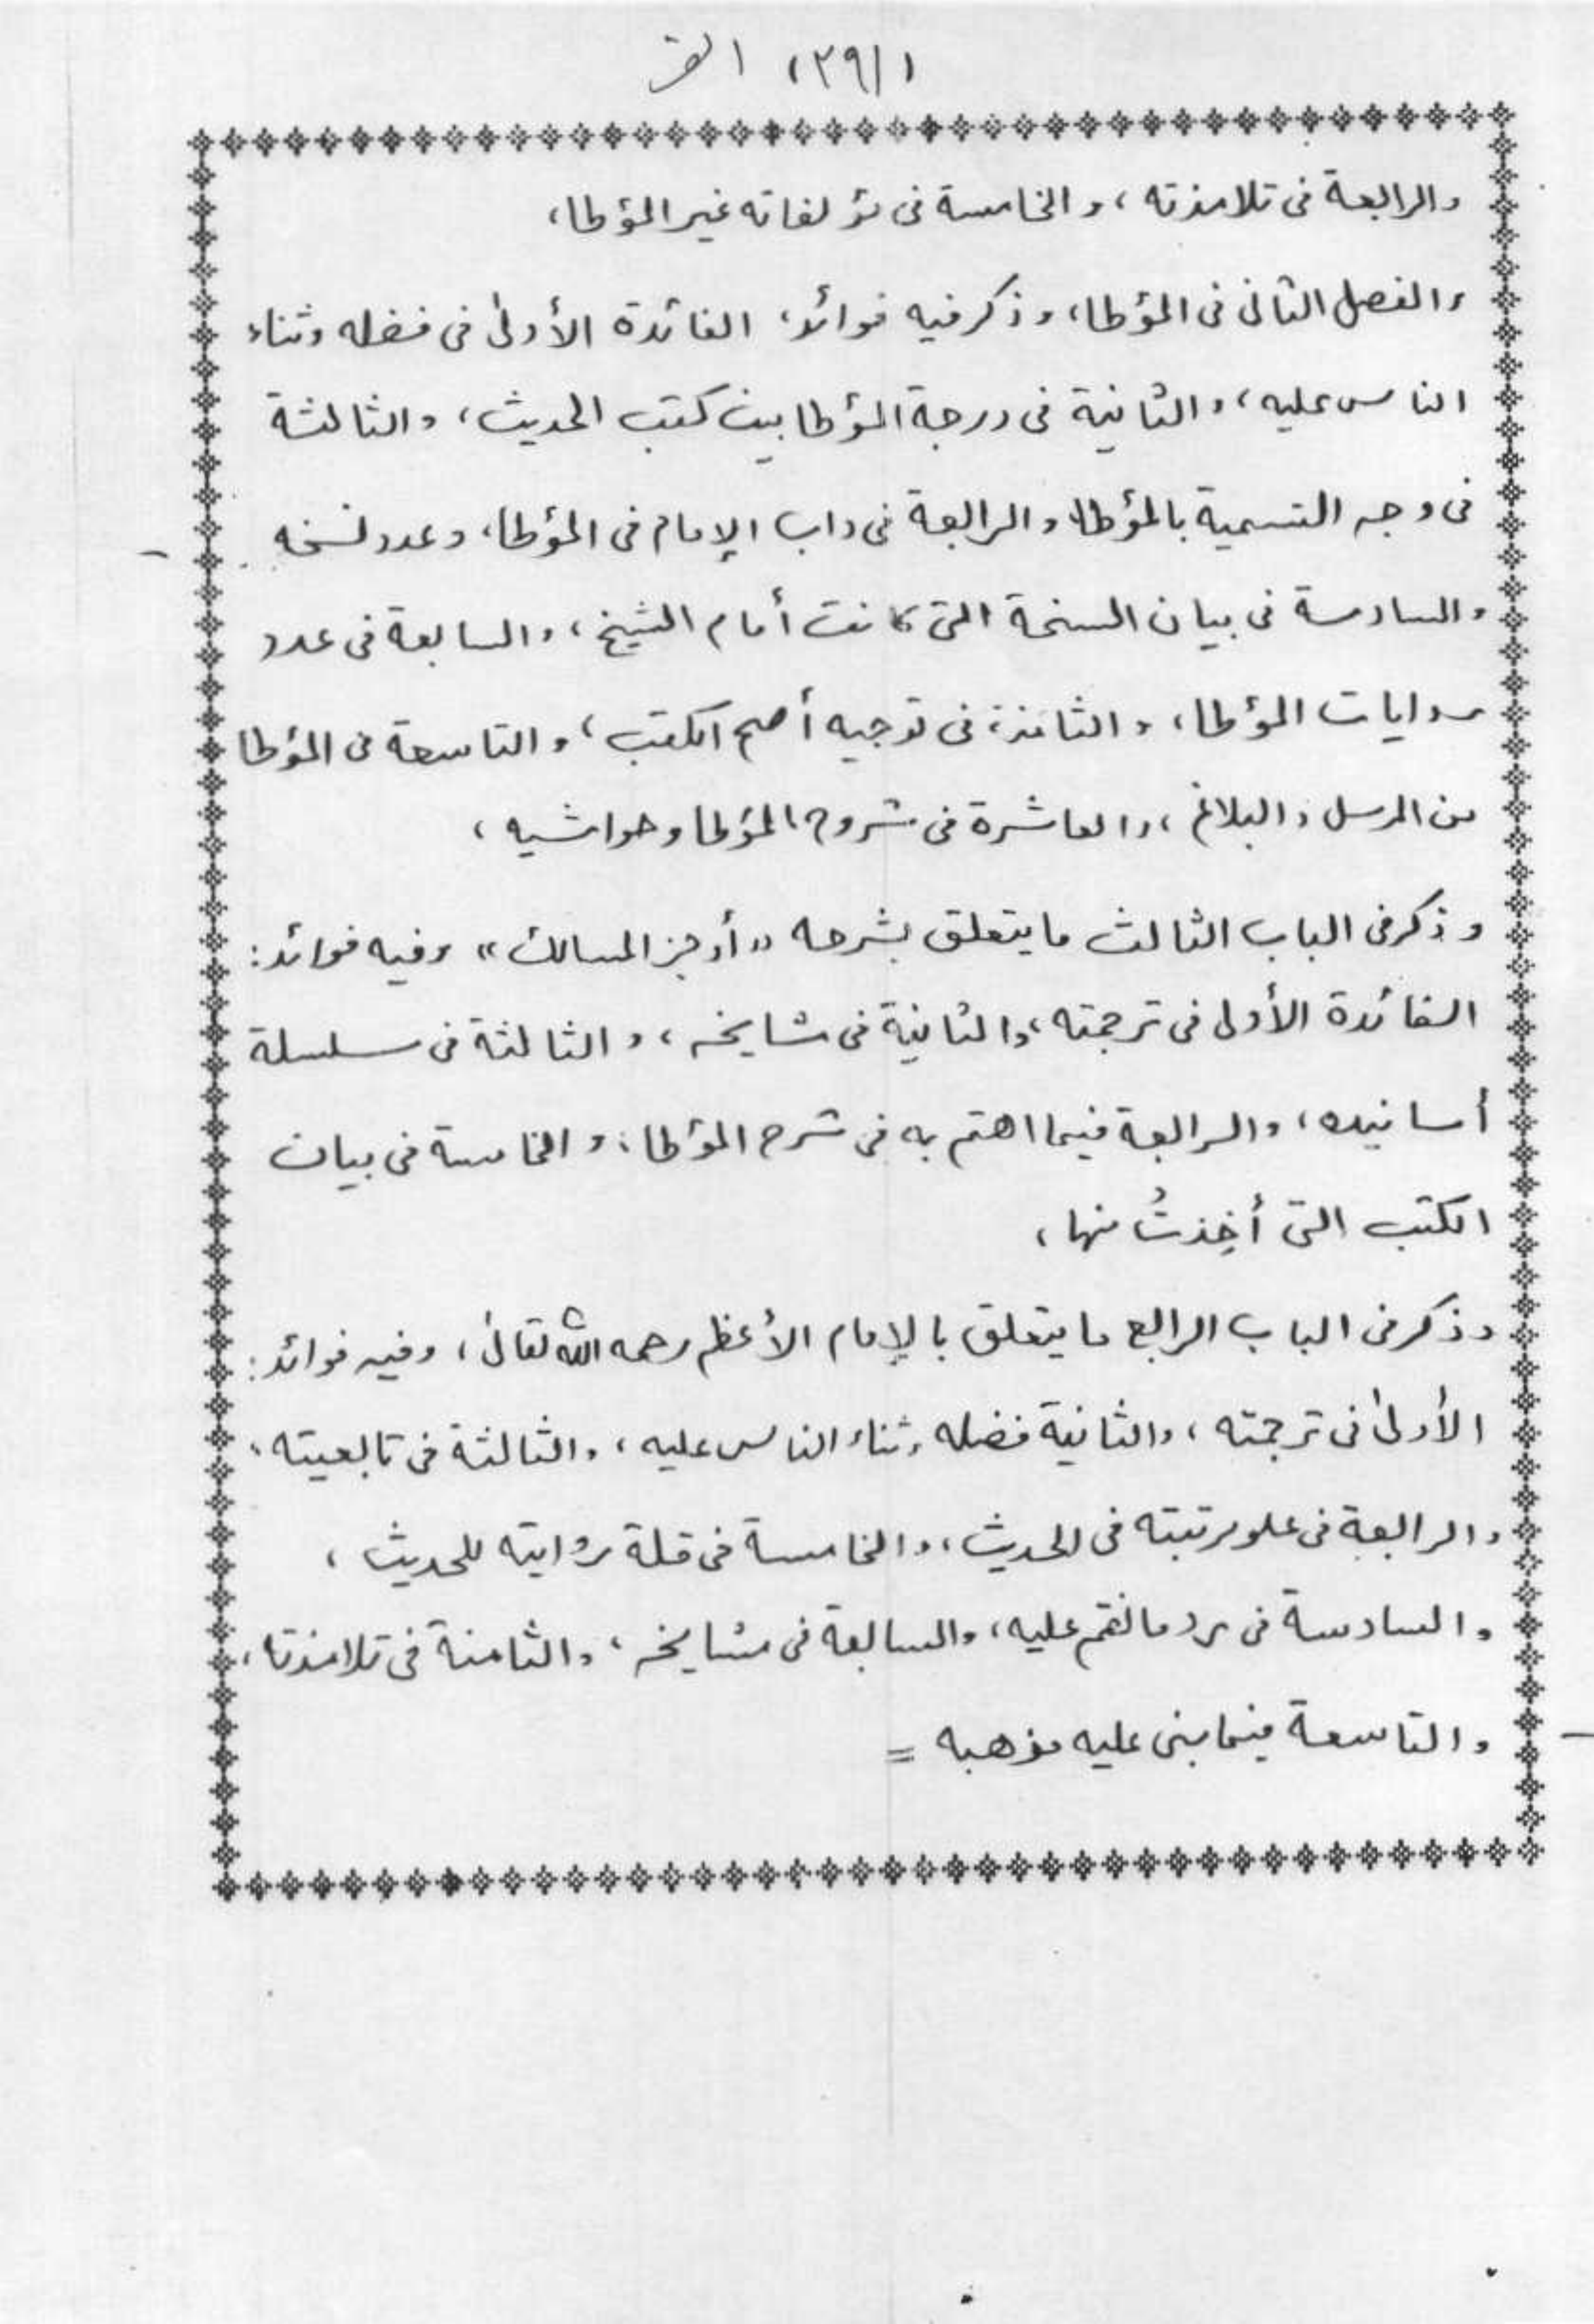 (٣٩/١)
والرابعة فى تلامذته، والخامسة فى مؤلفاته غير المؤطا،
والفصل الثانى فى المؤطا، وذكر فيه فوائد، الفائدة الأولىٰ فى فضله وثناء
الناس عليه، والثانية فى درجة المؤطا بين كتب الحديث، والثالثة
فى وجه التسمية بالمؤطا، والرابعة فى داب الإمام فى المؤطا، وعدد نسخه
والسادسة فى بيان النسخة التى كانت أمام الشيخ، والسابعة فى عدد
روايات المؤطا، والثامنة فى توجيه أصح الكتب، والتاسعة فى المؤطا
من المرسل والبلاغ، والعاشرة فى شروح المؤطا وحواشيه،
وذكر فى الباب الثالث ما يتعلق بشرحه «أوجز المسالك» وفيه فوائد:
الفائدة الأولى فى ترجمته، والثانية فى مشايخه، والثالثة فى سلسلة
أسانيده، والرابعة فيما اهتم به فى شرح المؤطا، والخامسة فى بيان
الكتب التى أُخِذتُ منها،
وذكر فى الباب الرابع ما يتعلق بالإمام الأعظم رحمه الله تعالىٰ، وفيه فوائد:
الأولىٰ فى ترجمته، والثانية فضله وثناء الناس عليه، والثالثة فى تابعيته،
والرابعة فى علو مرتبته فى الحديث، والخامسة فى قلة روايته للحديث،
والسادسة فى رد ما نقم عليه، والسابعة فى مشايخه، والثامنة فى تلامذته،
والتاسعة فيما بنى عليه مذهبه =